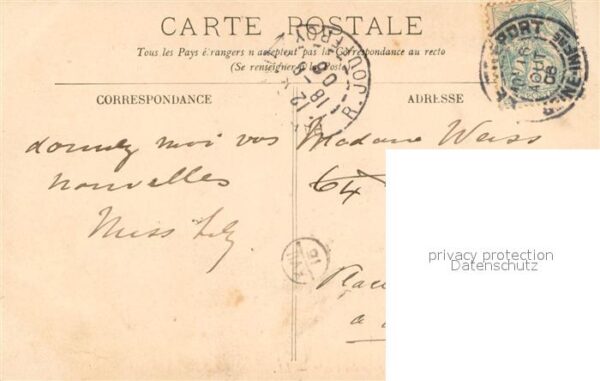 CARTE POSTALE
Tous les Pays étrangers n'acceptent pas la Correspondance au recto
(Se renseigner à la Poste)
CORRESPONDANCE
ADRESSE
R. JOUFFROY
12
18-8
06
AOUT
donnez moi vos
nouvelles
Miss Lily
Madame Weiss
64
a
privacy protection
Datenschutz